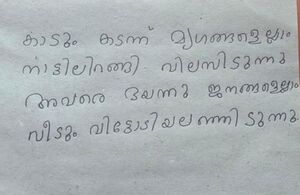 കാടും കടന്ന് മൃഗങ്ങളെല്ലാം
നാട്ടിലിറങ്ങി വിലസിടുന്നു
അവരെ ഭയന്നു ജനങ്ങളെല്ലാം
വീടും വിട്ടോടിയലഞ്ഞിടുന്നു